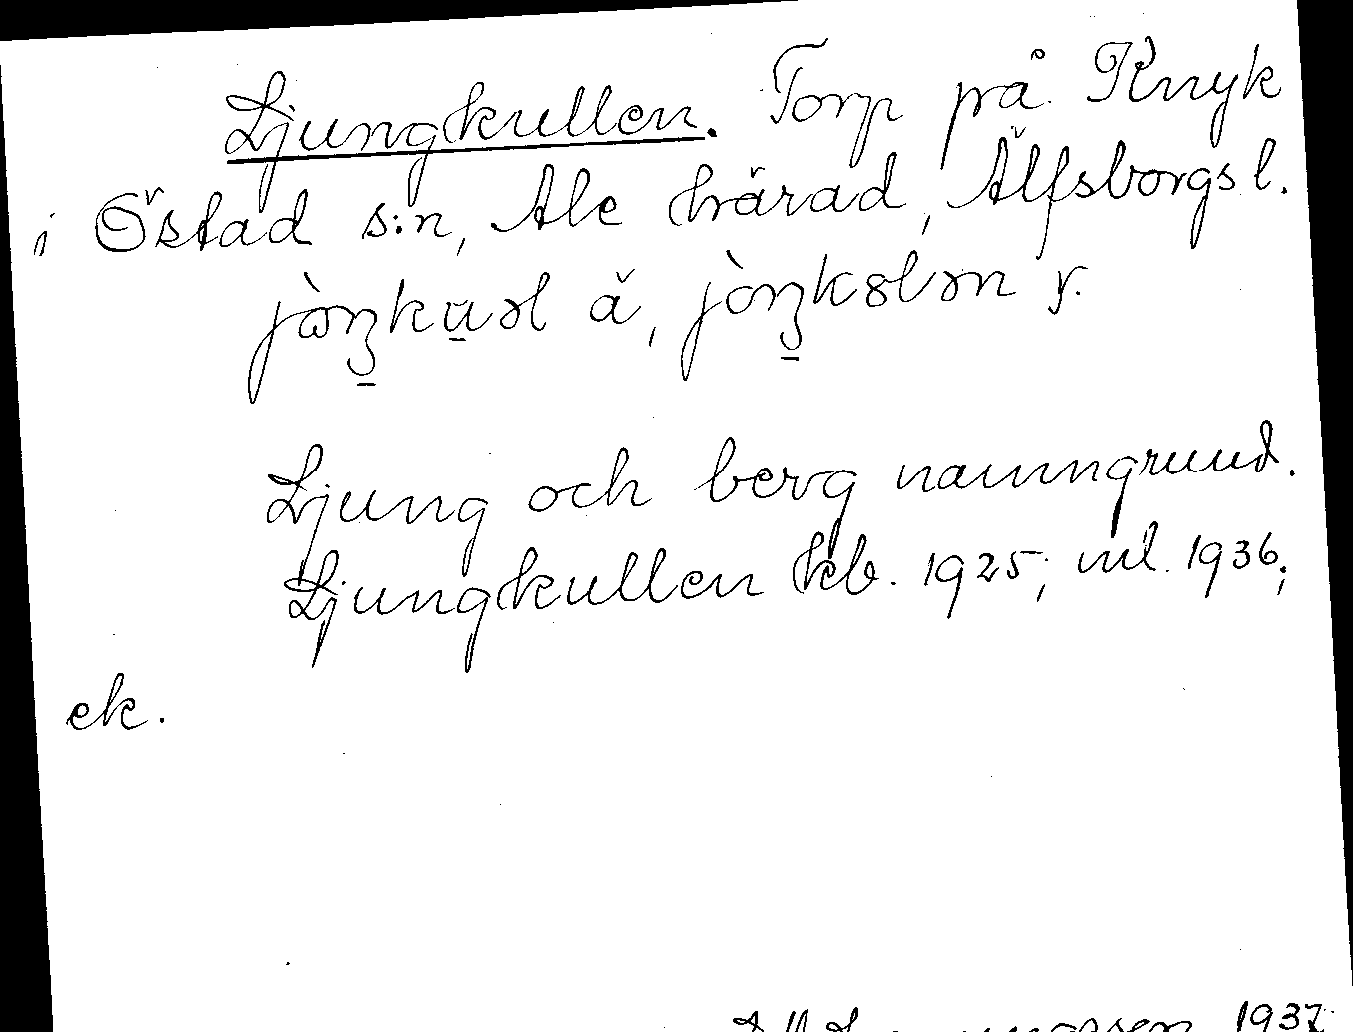 Ljungkullen. Torp på Knyk
i Östad s:n, Ale härad, Älfsborgs l.
ä, y.
Ljung och berg namngrund.
Ljungkullen kb. 1925; ml. 1936;
ek.
1937